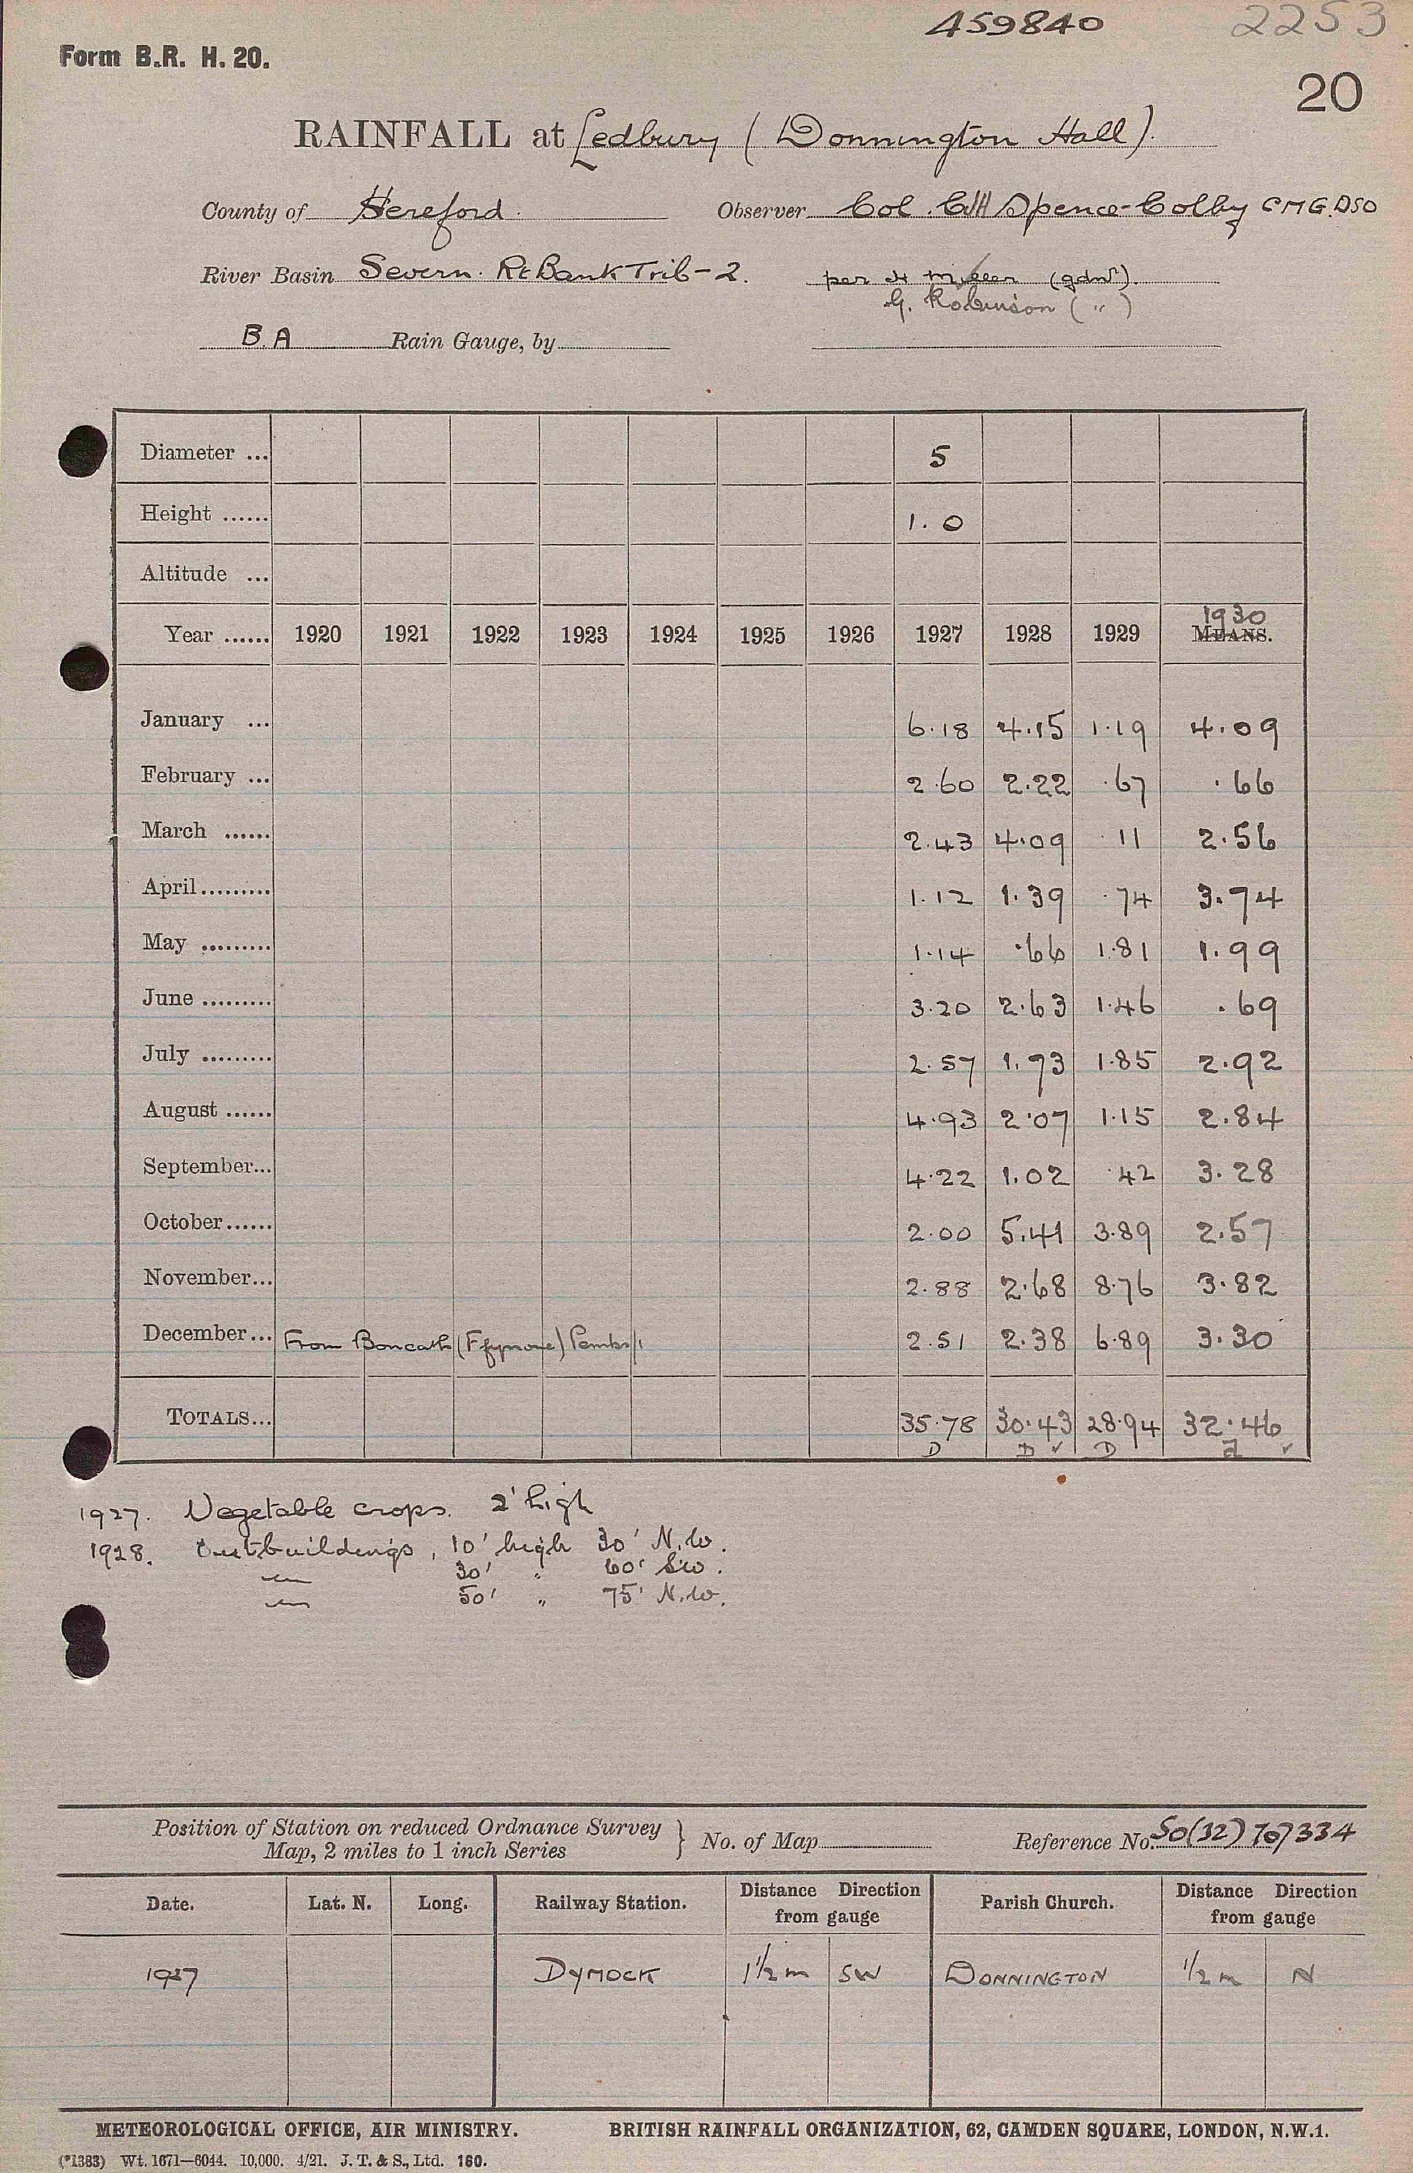 459840 2253
Form B.R. H. 20.
20
RAINFALL at Ledbury (Donnington Hall).
County of Hereford. Observer Col. C.J.H Spence-Colby CMG.DSO
River Basin Severn. Rt Bank Trib-2. per H (gdnr).
G. Robinson ( " )
B.A Rain Gauge, by
Diameter ... 5
Height ...... 1.0
Altitude ...
1930
Year ...... 1920 1921 1922 1923 1924 1925 1926 1927 1928 1929 MEANS.
January ... 6.18 4.15 1.19 4.09
February ... 2.60 2.22 .67 .66
March ...... 2.43 4.09 .11 2.56
April......... 1.12 1.39 .74 3.74
May ......... 1.14 .66 1.81 1.99
June ......... 3.20 2.63 1.46 .69
July ......... 2.57 1.73 1.85 2.92
August ...... 4.93 2.07 1.15 2.84
September... 4.22 1.02 .42 3.28
October...... 2.00 5.41 3.89 2.57
November... 2.88 2.68 8.76 3.82
December... From Boncath (Ffynone) Pembs 2.51 2.38 6.89 3.30
TOTALS... 35.78 30.43 28.94 32.46
D D ✓ D ✓
1927. Vegetable crops. 2' high
1928. Outbuildings, 10' high 30' N.W.
" 30' " 60' S.W.
" 50' " 75' N.W.
Position of Station on reduced Ordnance Survey
Map, 2 miles to 1 inch Series } No. of Map Reference No. SO(32) 707334
Date. Lat. N. Long. Railway Station. Distance Direction from gauge Parish Church. Distance Direction from gauge
1927 DYMOCK 1½ m SW DONNINGTON ½ m N
METEOROLOGICAL OFFICE, AIR MINISTRY. BRITISH RAINFALL ORGANIZATION, 62, CAMDEN SQUARE, LONDON, N.W.1.
(*1383) Wt. 1671—6044. 10,000. 4/21. J. T. & S., Ltd. 160.